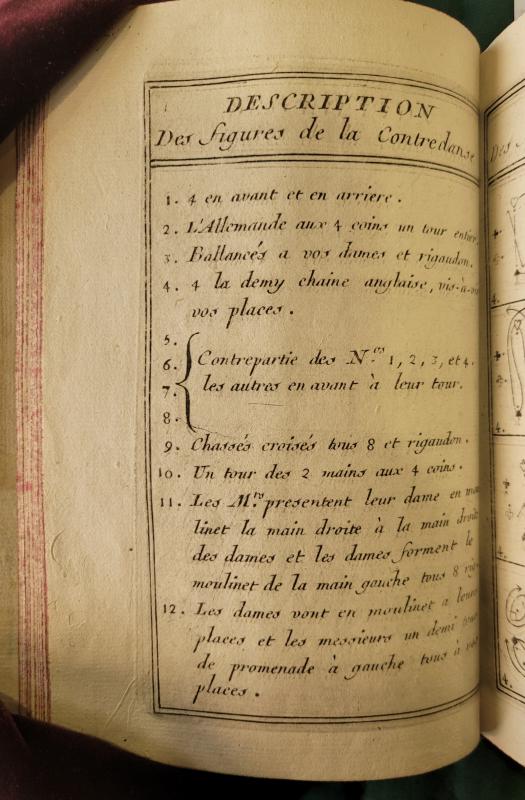 DESCRIPTION
Des figures de la Contredanse
1. 4 en avant et en arriere.
2. L'Allemande aux 4 coins un tour entier.
3. Ballancés a vos dames et rigaudon.
4. 4 la demy chaine anglaise, vis-à-vis
vos places.
5.
6. Contrepartie des N.os 1, 2, 3, et 4.
7. les autres en avant à leur tour.
8.
9. Chassés croisés tous 8 et rigaudon.
10. Un tour des 2 mains aux 4 coins.
11. Les M.rs presentent leur dame en mou
linet la main droite à la main droite
des dames et les dames forment le
moulinet de la main gauche tous 8
12. Les dames vont en moulinet a leurs
places et les messieurs un demi tour
de promenade à gauche tous à vos
places.
Des
4.
4.
4.
4.